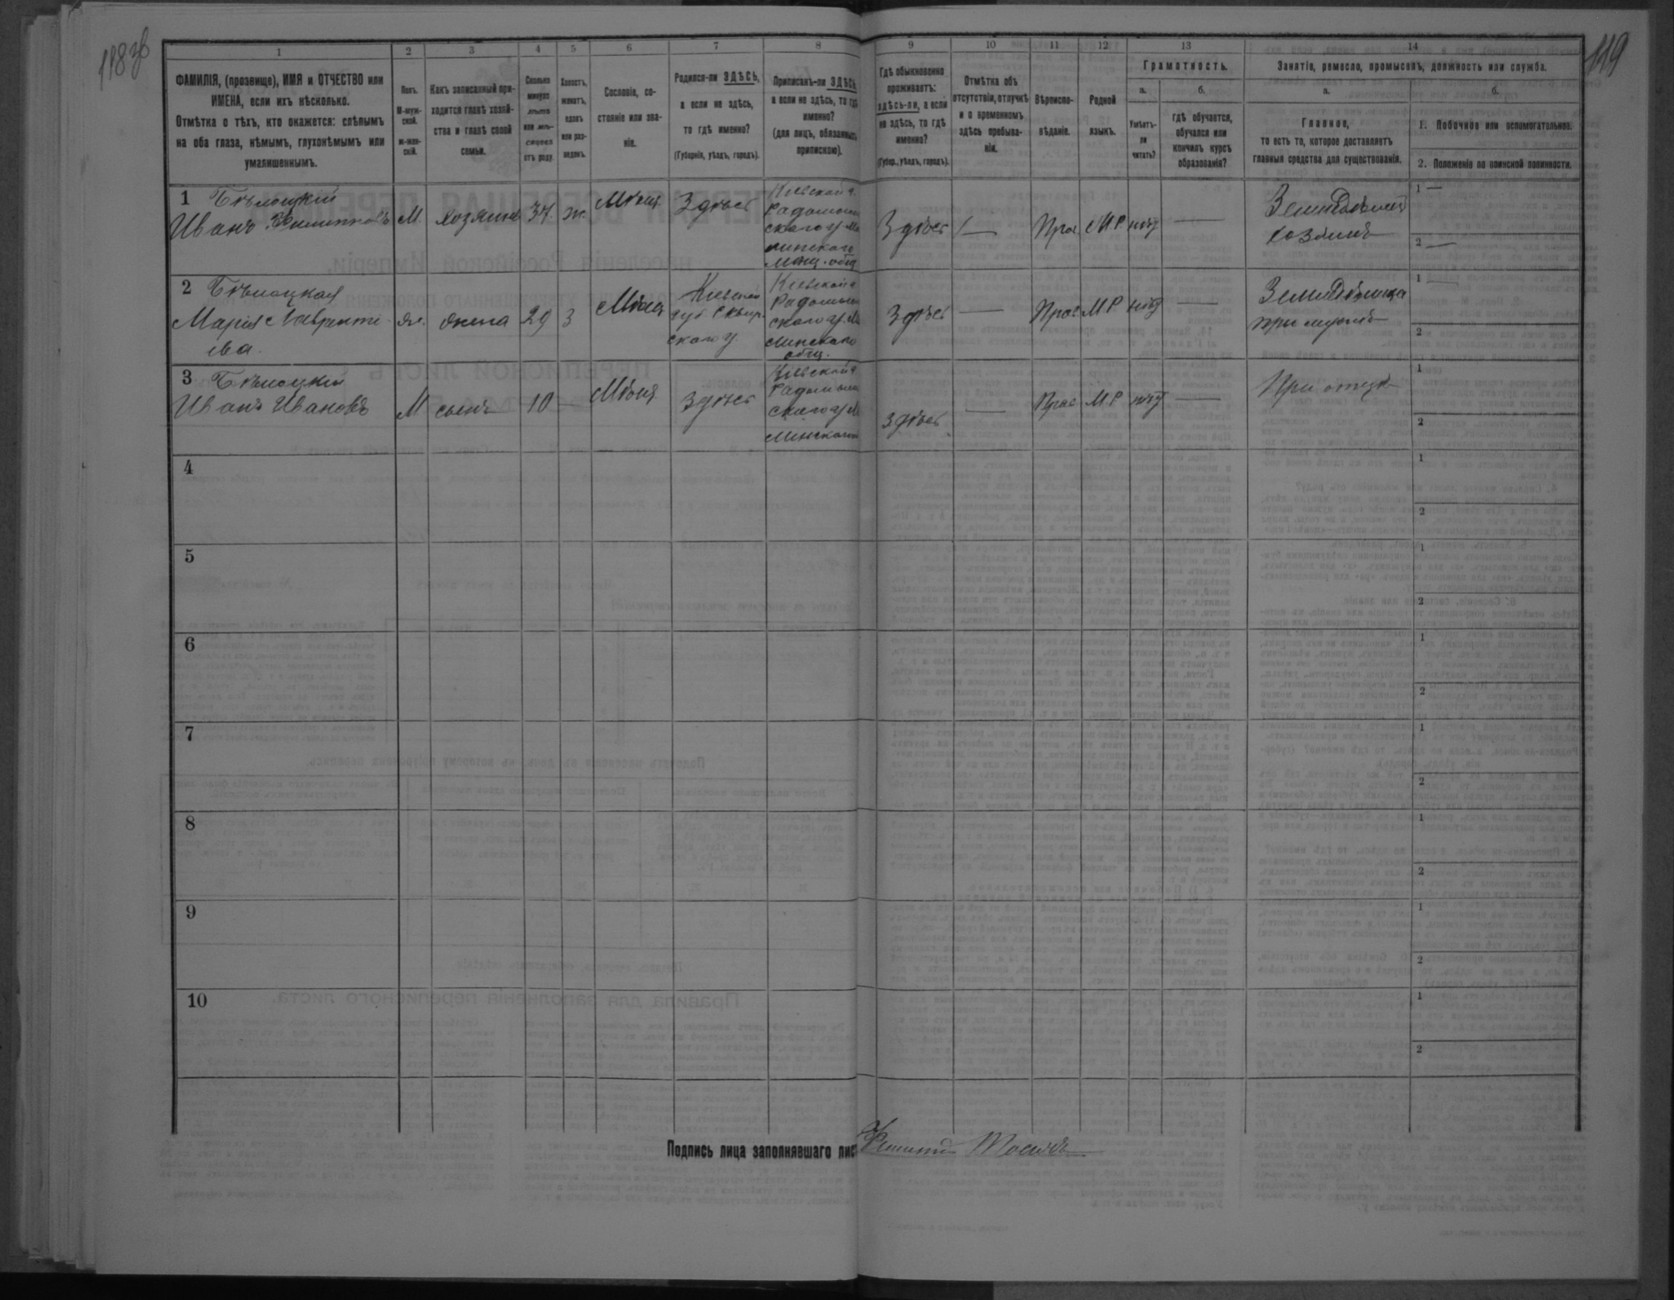 118об
119
1 2 3 4 5 6 7 8 9 10 11 12 13 14
ФАМИЛІЯ, (прозвище), ИМЯ и ОТЧЕСТВО или
ИМЕНА, если ихъ нѣсколько.
Отмѣтка о тѣхъ, кто окажется: слѣпымъ
на оба глаза, нѣмымъ, глухонѣмымъ или
умалишеннымъ.
Полъ.
М-муж-
ской.
ж-жен-
скій.
Какъ записанный при-
ходится главѣ хозяй-
ства и главѣ своей
семьи.
Сколько
минуло
лѣтъ
или мѣ-
сяцевъ
отъ роду.
Холостъ,
женатъ,
вдовъ
или раз-
веденъ.
Сословіе, со-
стояніе или зва-
ніе.
Родился-ли ЗДѢСЬ,
а если не здѣсь,
то гдѣ именно?
(Губернія, уѣздъ, городъ).
Приписанъ-ли ЗДѢСЬ,
а если не здѣсь, то гдѣ
именно?
(для лицъ, обязанныхъ
припискою).
Гдѣ обыкновенно
проживаетъ:
здѣсь-ли, а если
не здѣсь, то гдѣ
именно?
(Губер., уѣздъ, городъ).
Отмѣтка объ
отсутствіи, отлучкѣ
и о временномъ
здѣсь пребыва-
ніи.
Вѣроиспо-
вѣданіе.
Родной
языкъ.
Грамотность.
а.
Умѣетъ-
ли
читать?
б.
гдѣ обучается,
обучался или
кончилъ курсъ
образованія?
Занятіе, ремесло, промыселъ, должность или служба.
а.
Главное,
то есть то, которое доставляетъ
главныя средства для существованія.
б.
1. Побочное или вспомогательное.
2. Положеніе по воинской повинности.
1 Бѣлоцкій
Иванъ
М. хозяинъ 34 ж. Мѣщ. Здѣсь
Кіевской г.
Радомысль
скаго у. Ма
линскаго
Мѣщ. общ
Здѣсь — Прав МР нѣт —
Земледѣлецъ
хозяинъ
1 —
2 —
2 Бѣлоцкая
Марія Лаврентіе
ва
ж. жена 29 з Мѣщ
Кіевской
губ Сквир
скаго у.
Кіевской г
Радомысль
скаго у. Ма
линскаго
общ.
Здѣсь Прав МР нѣт —
Земледѣлица
при мужѣ
1 —
2
3 Бѣлоцкій
Иванъ Ивановъ
М сынъ 10 — Мѣщ Здѣсь
Кіевской г
Радомысль
скаго у Ма
линскаго
Здѣсь — Прав МР нѣт —
При отцѣ
1
2
4
1
2
5
1
2
6
1
2
7
1
2
8
1
2
9
1
2
10
1
2
Подпись лица заполнявшаго лис